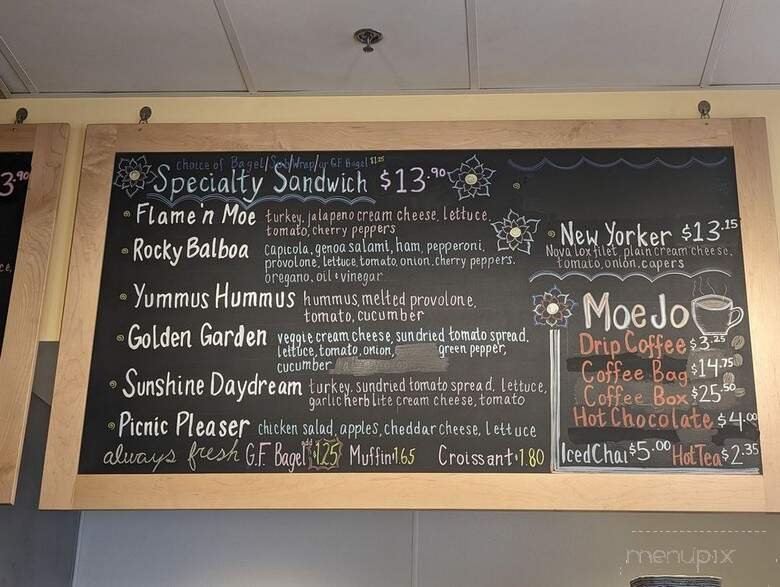 3.90
choice of Bagel/Sub/Wrap/or G.F. Bagel $1.25
Specialty Sandwich $13.90
Flame'n Moe turkey, jalapeno cream cheese, lettuce,
tomato, cherry peppers
Rocky Balboa capicola, genoa salami, ham, pepperoni,
provolone, lettuce, tomato, onion, cherry peppers,
oregano, oil & vinegar
Yummus Hummus hummus, melted provolone,
tomato, cucumber
Golden Garden veggie cream cheese, sundried tomato spread,
lettuce, tomato, onion, green pepper,
cucumber
Sunshine Daydream turkey, sundried tomato spread, lettuce,
garlic herb lite cream cheese, tomato
Picnic Pleaser chicken salad, apples, cheddar cheese, lettuce
always fresh G.F. Bagel add $1.25 Muffin 1.65 Croissant 1.80
New Yorker $13.15
Nova lox filet, plain cream cheese,
tomato, onion, capers
Moe Jo
Drip Coffee $3.25
Coffee Bag $14.75
Coffee Box $25.50
Hot Chocolate $4.00
Iced Chai $5.00 Hot Tea $2.35
menupix